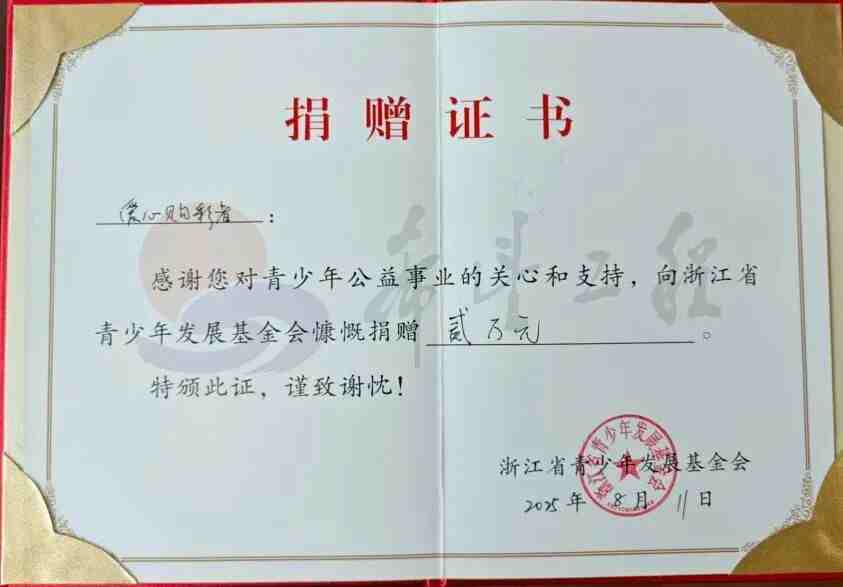 捐赠证书
爱心购彩者：
希望工程
感谢您对青少年公益事业的关心和支持，向浙江省
青少年发展基金会慷慨捐赠贰万元。
特颁此证，谨致谢忱！
浙江省青少年发展基金会
浙江省青少年发展基金会
2025年8月11日